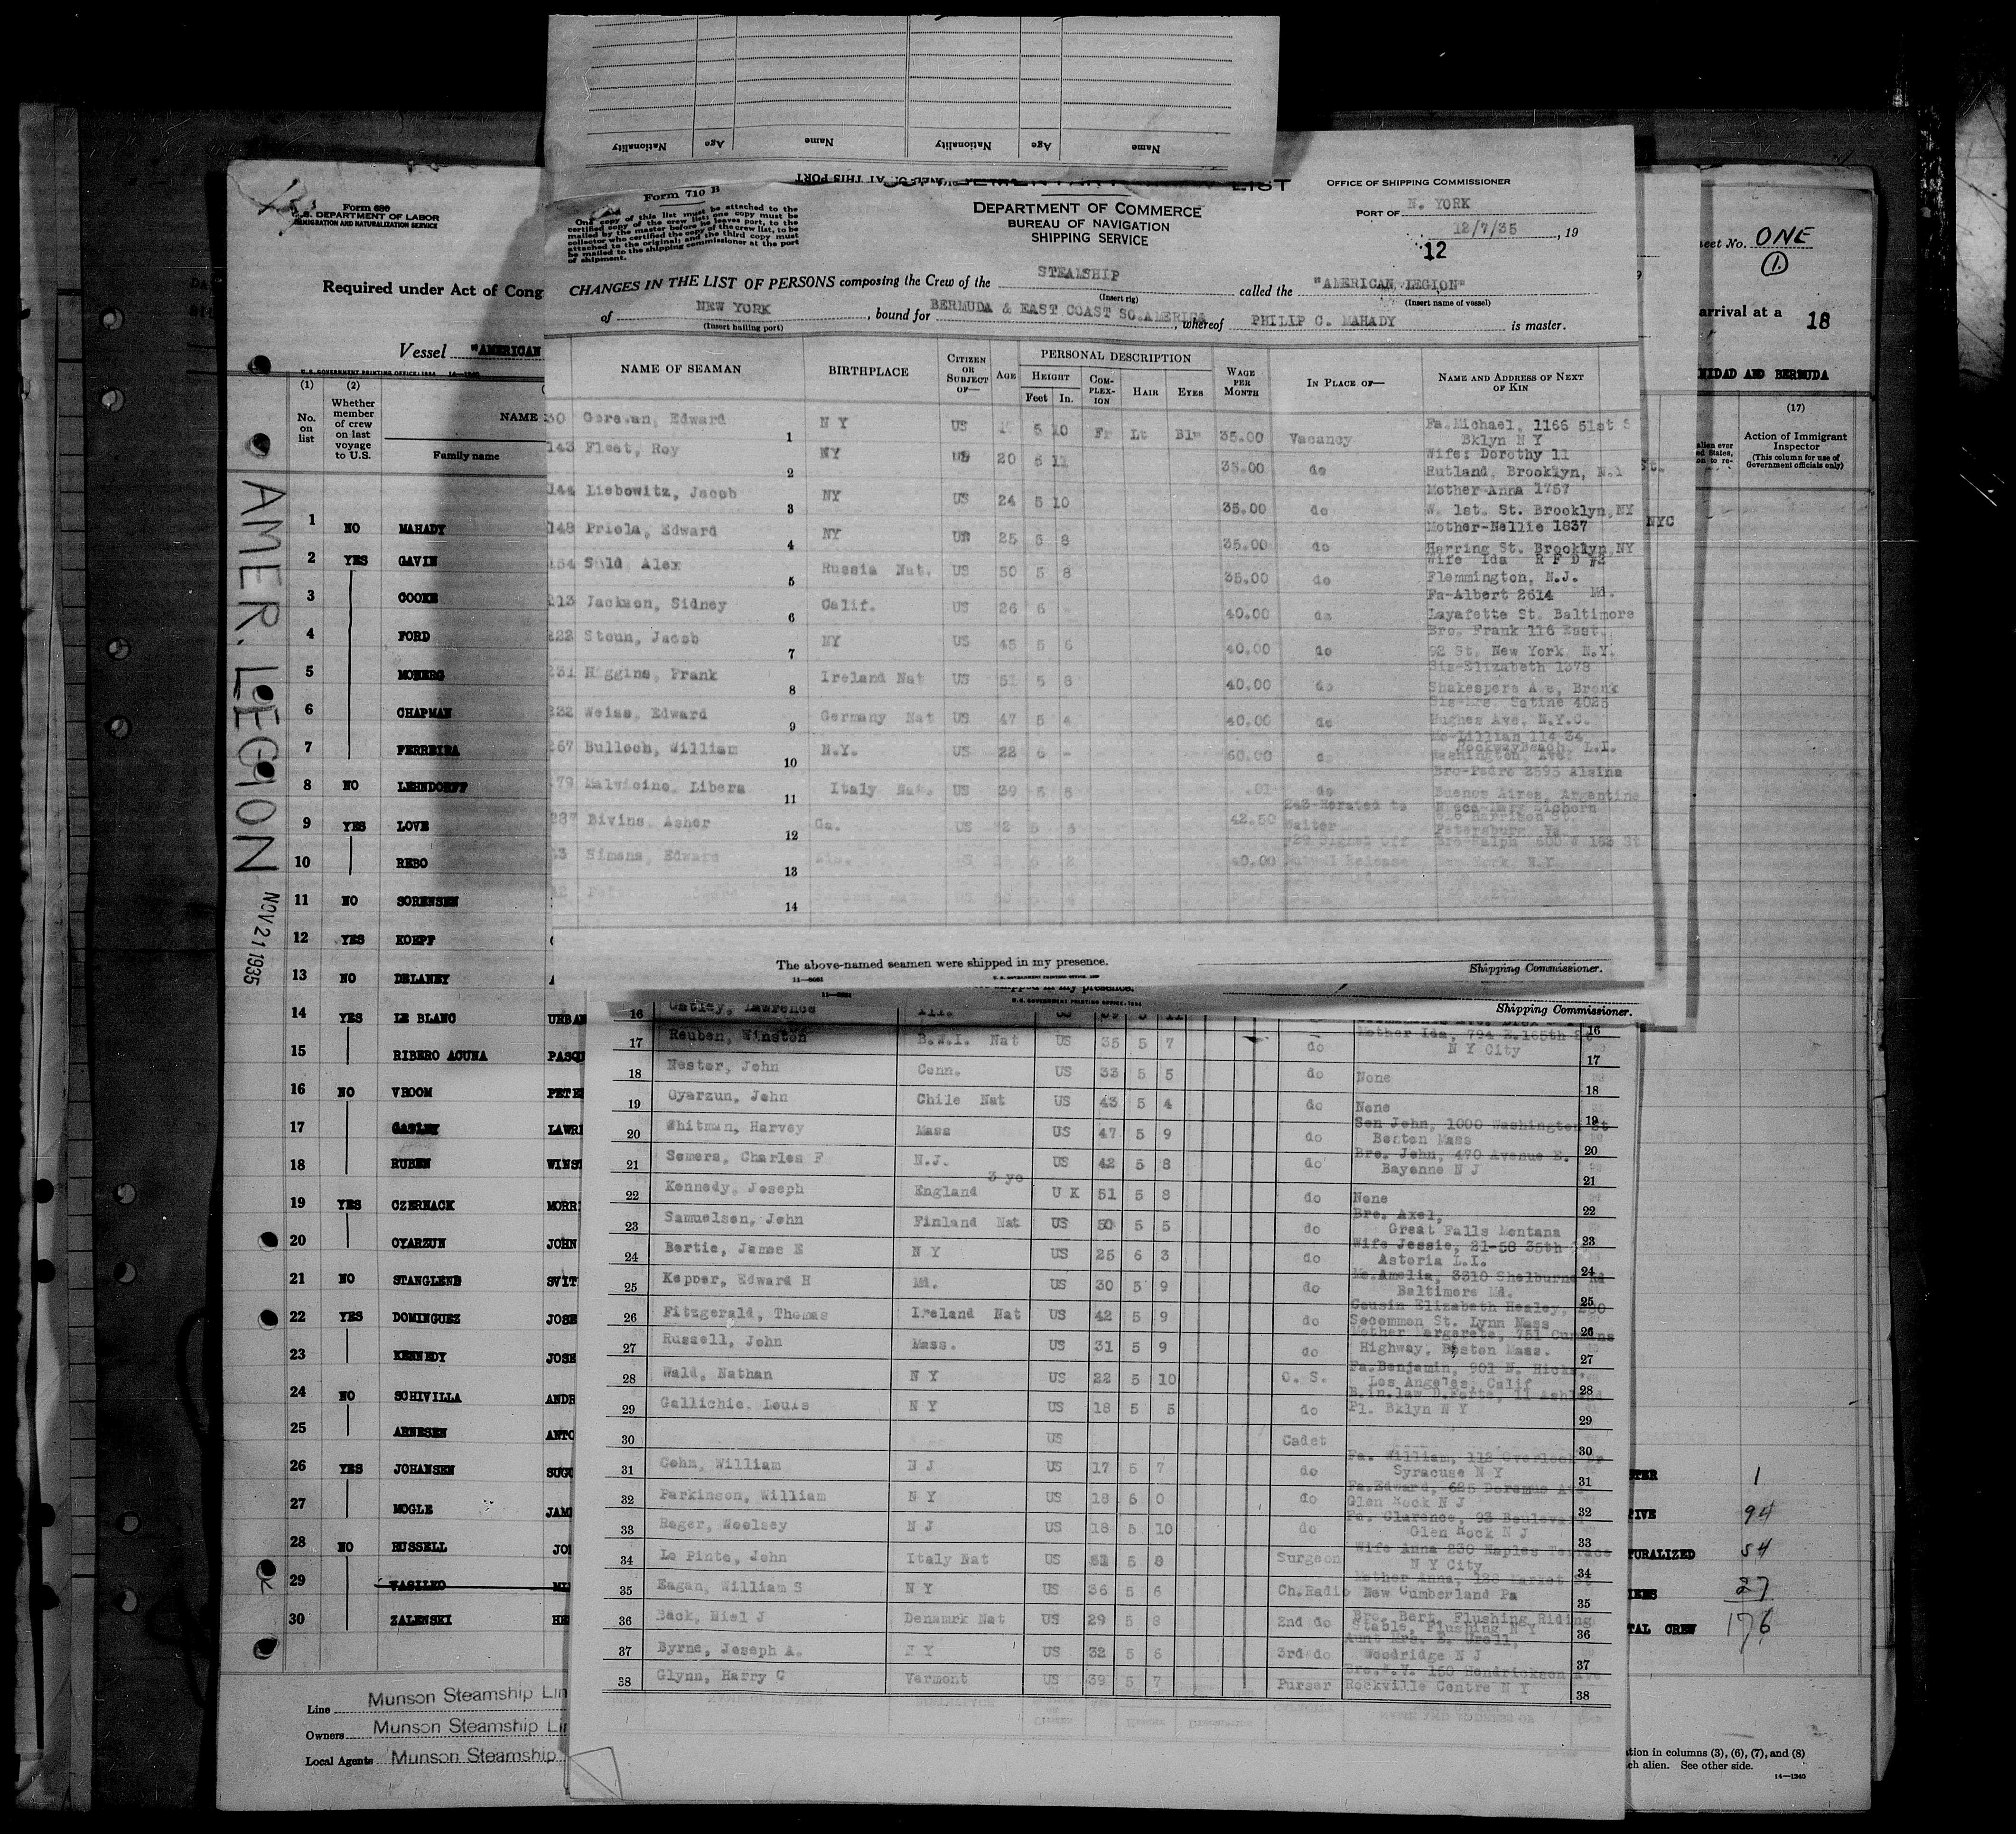 Nationality Age Name Nationality Age Name
AT THIS PORT
LIST
Form 710 B
One copy of this list must be attached to the
certified copy of the crew list; one copy must be
mailed by the master before he leaves port, to the
collector who certified the copy of the crew list, to be
attached to the original; and the third copy must
be mailed to the shipping commissioner at the port
of shipment.
DEPARTMENT OF COMMERCE
BUREAU OF NAVIGATION
SHIPPING SERVICE
OFFICE OF SHIPPING COMMISSIONER
PORT OF N. YORK
12/7/35, 19
12
CHANGES IN THE LIST OF PERSONS composing the Crew of the STEAMSHIP called the "AMERICAN LEGION"
(Insert rig) (Insert name of vessel)
of NEW YORK, bound for BERMUDA & EAST COAST SO.AMERICA, whereof PHILIP C. MAHADY is master.
(Insert hailing port)
NAME OF SEAMAN BIRTHPLACE CITIZEN OR SUBJECT OF— AGE PERSONAL DESCRIPTION WAGE PER MONTH IN PLACE OF— NAME AND ADDRESS OF NEXT OF KIN
HEIGHT COMPLEXION HAIR EYES
Feet In.
30 Edward 1 N Y US 5 10 Lt 35.00 Vacancy Fa.Michael, 1166 51st S
Bklyn N Y
143 Fleet, Roy 2 NY US 20 5 11 35.00 do Wife: Dorothy 11
Rutland, Brooklyn, N.Y
Liebowitz, Jacob 3 NY US 24 5 10 35.00 do Mother Anna 1757
W. 1st. St. Brooklyn,NY
148 Priola, Edward 4 NY US 25 5 8 35.00 do Mother-Nellie 1837
Harring St. Brooklyn,NY
Alex 5 Russia Nat. US 50 5 8 35.00 do Wife Ida R F D #2
Flemmington, N.J.
213 Jackson, Sidney 6 Calif. US 26 6 - 40.00 do Fa-Albert 2614 Md.
Layafette St. Baltimore
222 Jacob 7 NY US 45 5 6 40.00 do Bro. Frank 116 East.
92 St. New York N.Y.
231 Higgins, Frank 8 Ireland Nat US 51 5 8 40.00 do Sis-Elizabeth 1378
Shakespere Ave, Bronk
232 Weiss, Edward 9 Germany Nat US 47 5 4 40.00 do Sis-Mrs. Satine 4025
Hughes Ave. N.Y.C.
267 Bulloch, William 10 N.Y. US 22 6 - 60.00 do Mo-Lillian 114-34
RockwayBeach, L.I.
Washington, Ave.
79 Malvicino, Libera 11 Italy Nat. US 39 5 5 .01 do Bro-Pedro 2595 Alsina
Buenos Aires, Argentine
287 Bivins, Asher 12 Ga. US 5 42.50 243-Rerated to
Waiter
616 Harrison St.
Petersburg, Va.
Simons, Edward 13 US 2 40.00 Signed Off
Mutual Release
Bro-Ralph 600 W 163 St
New York, N.Y.
14
The above-named seamen were shipped in my presence.
Shipping Commissioner.
Shipping Commissioner.
16 Gatley, Lawrence 16
17 Reuben, Winston B.W.I. Nat US 35 5 7 do Mother Ida, 794 E.165th St
N Y City 17
18 Nester, John Conn. US 33 5 5 do None 18
19 Oyarzun, John Chile Nat US 43 5 4 do None 19
20 Whitman, Harvey Mass US 47 5 9 do Son John, 1000 Washington St
Boston Mass 20
21 Somers, Charles F N.J. US 42 5 8 do Bro. John, 470 Avenue E.
Bayonne N J 21
22 Kennedy, Joseph England U K 51 5 8 do None 22
23 Samuelson, John Finland Nat US 50 5 5 do Bro. Axel,
Great Falls Montana 23
24 Bertie, James E N Y US 25 6 3 do Wife Jessie, 21-58 35th
Astoria L.I. 24
25 Kepper, Edward H Md. US 30 5 9 do Mo.Amelia, 3310 Shelburne Rd
Baltimore Md. 25
26 Fitzgerald, Thomas Ireland Nat US 42 5 9 do Cousin Elizabeth Healey,
Secommon St. Lynn Mass 26
27 Russell, John Mass. US 31 5 9 do Mother Margarete, 751 Cummins
Highway, Boston Mass. 27
28 Wald, Nathan N Y US 22 5 10 O. S. Fa.Benjamin, 901 N. Hicks,
Los Angeles, Calif 28
29 Gallichio, Louis N Y US 18 5 5 do B.in.law
Pl. Bklyn N Y 29
30 US Cadet 30
31 Cohm, William N J US 17 5 7 do Fa. William, 112 Overlook Dr
Syracuse N Y 31
32 Parkinson, William N Y US 18 6 0 do Fa.Edward, 625 Doremus Ave
Glen Rock N J 32
33 Roger, Woolsey N J US 18 5 10 do Fa. Clarence, 93 Boulevard
Glen Rock N J 33
34 Lo Pinto, John Italy Nat US 5 8 Surgeon Wife Anna 230 Naples Terrace
N Y City 34
35 Eagan, William S N Y US 36 5 6 Ch.Radio Mother Anna, 128 Market St
New Cumberland Pa 35
36 Back, Niel J Denamrk Nat US 29 5 8 2nd do Bro. Bert, Flushing Riding
Stable, Flushing N Y 36
37 Byrne, Joseph A. N Y US 32 5 6 3rd do Aunt Mrs. E.
Woodridge N J 37
38 Glynn, Harry C Vermont US 39 5 7 Purser 150 Hendrickson Ave
Rockville Centre N Y 38
Form 680
U.S. DEPARTMENT OF LABOR
IMMIGRATION AND NATURALIZATION SERVICE
Required under Act of Cong
Vessel "AMERICAN
U. S. GOVERNMENT PRINTING OFFICE: 1934 14—1240
(1) (2)
No. on list
Whether member of crew on last voyage to U.S.
NAME
Family name
1 NO MAHADY
2 YES GAVIN
3 COOKE
4 FORD
5 MOBERG
6 CHAPMAN
7 FERREIRA
8 NO LEHNDORFF
9 YES LOVE
10 REBO
11 NO SORENSEN
12 YES KOEPF
13 NO DELANEY
14 YES LE BLANC URBAN
15 RIBERO ACUNA PASQU
16 NO VROOM PETE
17 GATLEY LAWR
18 RUBEN WINS
19 YES CZERNACK MORR
20 OYARZUN JOHN
21 NO STANGLEND SVIT
22 YES DOMINGUEZ JOSE
23 KENNEDY JOSE
24 NO SCHIVILLA ANDR
25 ARNESEN ANTO
26 YES JOHANSEN
27 MOGLE JAM
28 NO RUSSELL JO
29 VASILEO
30 ZALENSKI HE
AMER. LEGION
NOV 21 1935
Line Munson Steamship Lin
Owners Munson Steamship Li
Local Agents Munson Steamship
eet No. ONE
1
arrival at a 18
NIDAD AND BERMUDA
(17)
Action of Immigrant
Inspector
(This column for use of
Government officials only)
St.
NYC
STER 1
TIVE 94
TURALIZED 54
IENS 27
TAL CREW 176
tion in columns (3), (6), (7), and (8)
ch alien. See other side.
14—1240